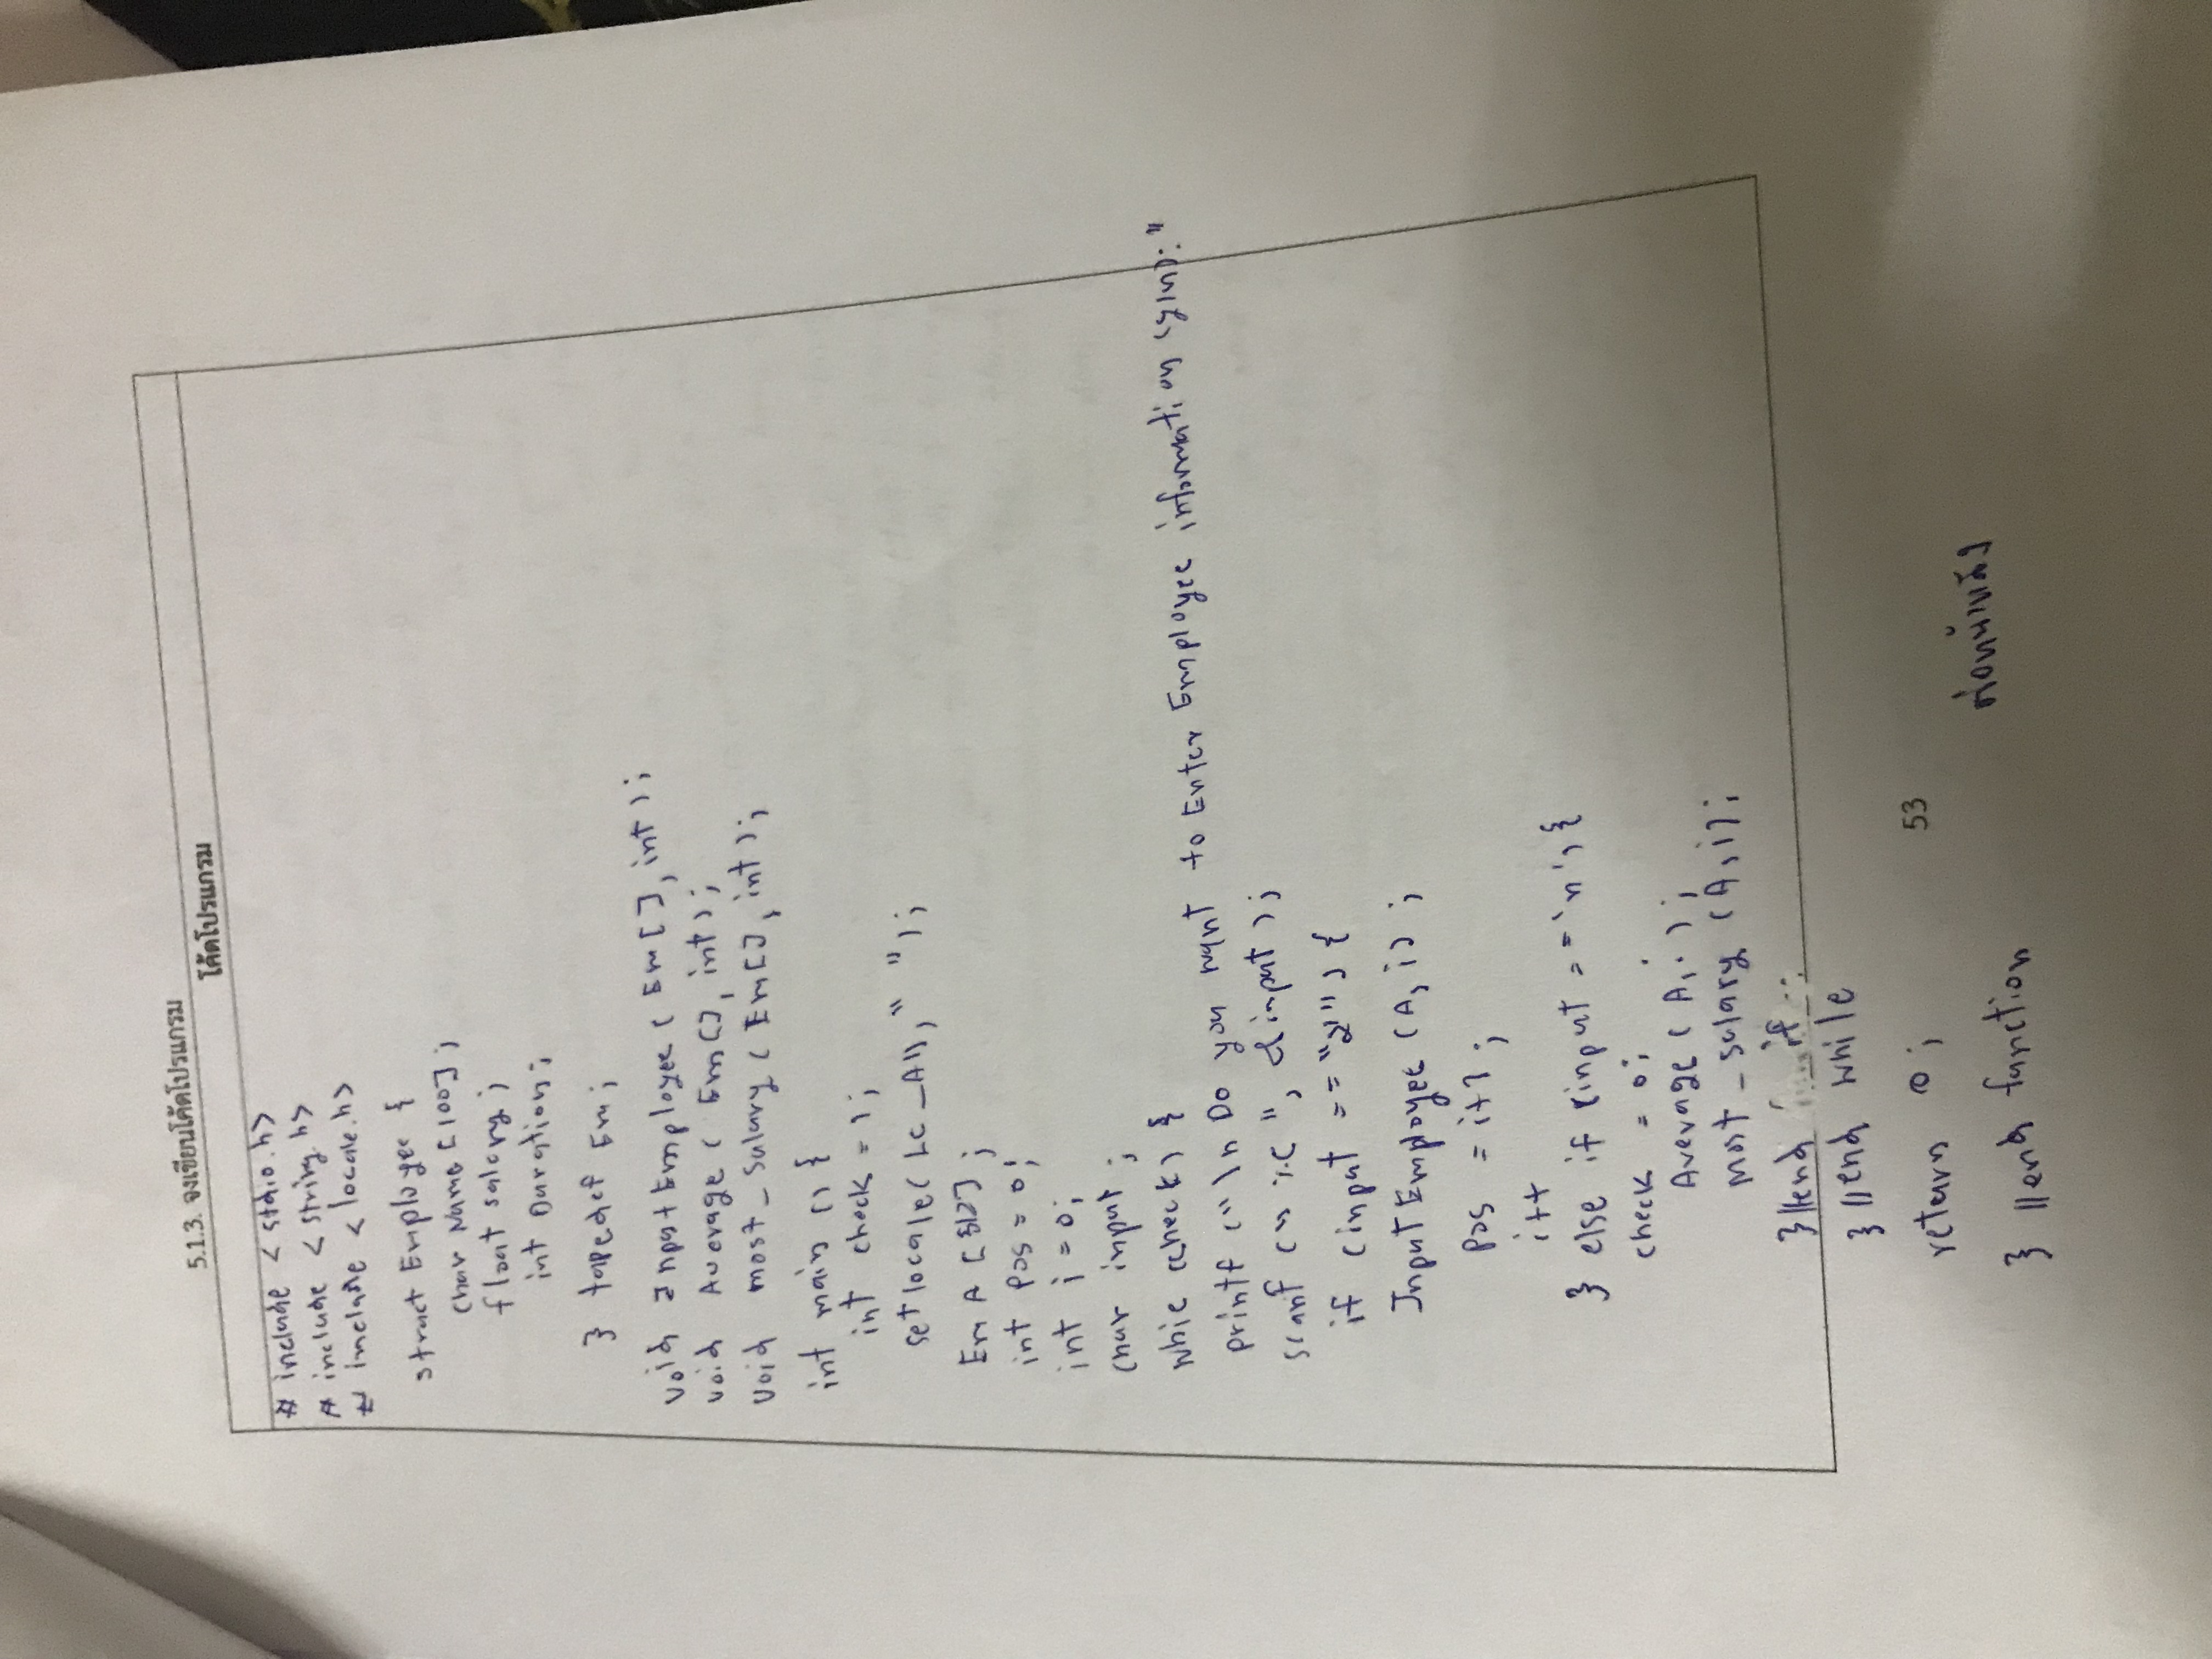 5.1.3. จงเขียนโค้ดโปรแกรม
โค้ดโปรแกรม
# include < stdio.h>
# include < string.h>
# include < locale.h>
struct Employee {
char Name [100] ;
float salary ;
int Duration ;
} tapedef Em ;
void InputEmployee ( Em [ ], int ) ;
void Average ( Em [ ], int ) ;
void most_salary ( Em [ ], int ) ;
int main () {
int check = 1 ;
setlocale( LC_All, " " ) ;
Em A [512] ;
int pos = 0 ;
int i = 0 ;
char input ;
whie (check) {
printf (" \n Do you want to Enter Employee information (y/n): "
scanf (" %c ", &input ) ;
if (input == "y" ) {
InputEmployee (A, i) ;
pos = i+1 ;
i++
} else if (input == 'n') {
check = 0 ;
Average ( A, i ) ;
most_salary (A, i) ;
} //end if
} //end while
return 0 ;
53
ต่อหน้าหลัง
} //end function